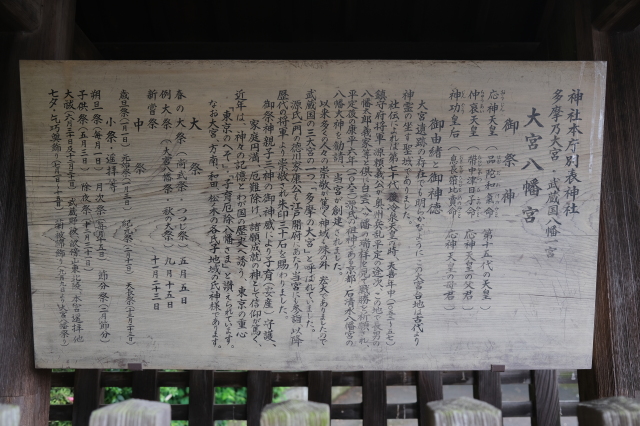 神社本庁別表神社
多摩乃大宮・武蔵国八幡一宮
大宮八幡宮
御祭神
応神天皇 品陀和氣命 第十五代の天皇
仲哀天皇 帯中津日子命 応神天皇の父君
神功皇后 息長帯比売命 応神天皇の母君
御由緒と御神徳
大宮遺跡の存在で明らかなように、この大宮台地は古代より
神霊の生す聖域でありました。
社伝によれば第七十代後冷泉天皇の時、天喜年中
鎮守府将軍源頼義公が奥州の乱平定の途次、この地で
八幡太郎義家等が供の白雲八幡の瑞祥を見て戦勝を祈願され、
平定後の康平六年(一〇六三)源氏の祖神である京都・石清水八幡宮の
八幡大神を勧請、当宮が創建されました。
以来多くの人々の崇敬を集め神威殊の外
武蔵国の三大宮の一つ「多摩の大宮」と呼ばれていました。
源氏一門の徳川家康公も江戸開府にあたり当宮に参詣、以降
歴代の将軍より崇敬され朱印三十石を賜わりました。
御祭神親子三神の御神蔵により子育(安産)守護、
家庭円満、厄難除け、諸願成就の神として信仰が篤く、
近年は、神々の記憶とわが国の歴史へ誘う、東京の重心
「東京のへそ」「子育厄除八幡さま」と讃えられています。
なお大宮、方南、和田、松ノ木の各氏子地域の氏神様であります。
大祭
春の大祭 つつじ祭 五月五日
例大祭(大宮八幡祭・秋の大祭) 九月十五日
新嘗祭 十一月二十三日
中祭
歳旦祭(一月一日) 元始祭(一月三日) 紀元祭(二月十一日) 天長祭
小祭・遥拝等
朔旦祭(毎月一日) 月次祭(毎月十五日) 節分祭(二月節分)
子供祭(五月五日) 除夜祭(十二月三十一日)
大祓(六月三十日及び十二月三十一日)
七夕・乞巧奠飾り